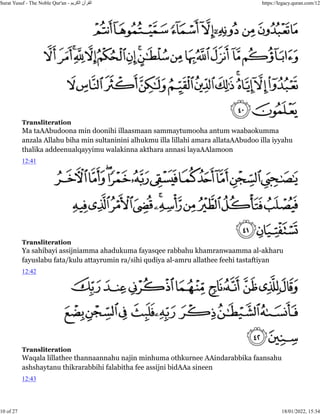 Surat Yusuf - The Noble Qur'an - القرآن الكريم
https://legacy.quran.com/12
مَا تَعْبُدُونَ مِن دُونِهِ إِلَّا أَسْمَاءً سَمَّيْتُمُوهَا أَنتُمْ
وَآبَاؤُكُم مَّا أَنزَلَ اللَّهُ بِهَا مِن سُلْطَانٍ إِنِ الْحُكْمُ إِلَّا لِلَّهِ أَمَرَ أَلَّا
تَعْبُدُوا إِلَّا إِيَّاهُ ذَٰلِكَ الدِّينُ الْقَيِّمُ وَلَٰكِنَّ أَكْثَرَ النَّاسِ لَا
يَعْلَمُونَ ٤٠
Transliteration
Ma taAAbudoona min doonihi illaasmaan sammaytumooha antum waabaokumma
anzala Allahu biha min sultaninini alhukmu illa lillahi amara allataAAbudoo illa iyyahu
thalika addeenualqayyimu walakinna akthara annasi layaAAlamoon
12:41
يَا صَاحِبَيِ السِّجْنِ أَمَّا أَحَدُكُمَا فَيَسْقِي رَبَّهُ خَمْرًا وَأَمَّا الْآخَرُ
فَيُصْلَبُ فَتَأْكُلُ الطَّيْرُ مِن رَّأْسِهِ قُضِيَ الْأَمْرُ الَّذِي فِيهِ
تَسْتَفْتِيَانِ ٤١
Transliteration
Ya sahibayi assijniamma ahadukuma fayasqee rabbahu khamranwaamma al-akharu
fayuslabu fata/kulu attayrumin ra/sihi qudiya al-amru allathee feehi tastaftiyan
12:42
وَقَالَ لِلَّذِي ظَنَّ أَنَّهُ نَاجٍ مِّنْهُمَا اذْكُرْنِي عِندَ رَبِّكَ
فَأَنسَاهُ الشَّيْطَانُ ذِكْرَ رَبِّهِ فَلَبِثَ فِي السِّجْنِ بِضْعَ
سِنِينَ ٤٢
Transliteration
Waqala lillathee thannaannahu najin minhuma othkurnee AAindarabbika faansahu
ashshaytanu thikrarabbihi falabitha fee assijni bidAAa sineen
12:43
10 of 27
18/01/2022, 15:34